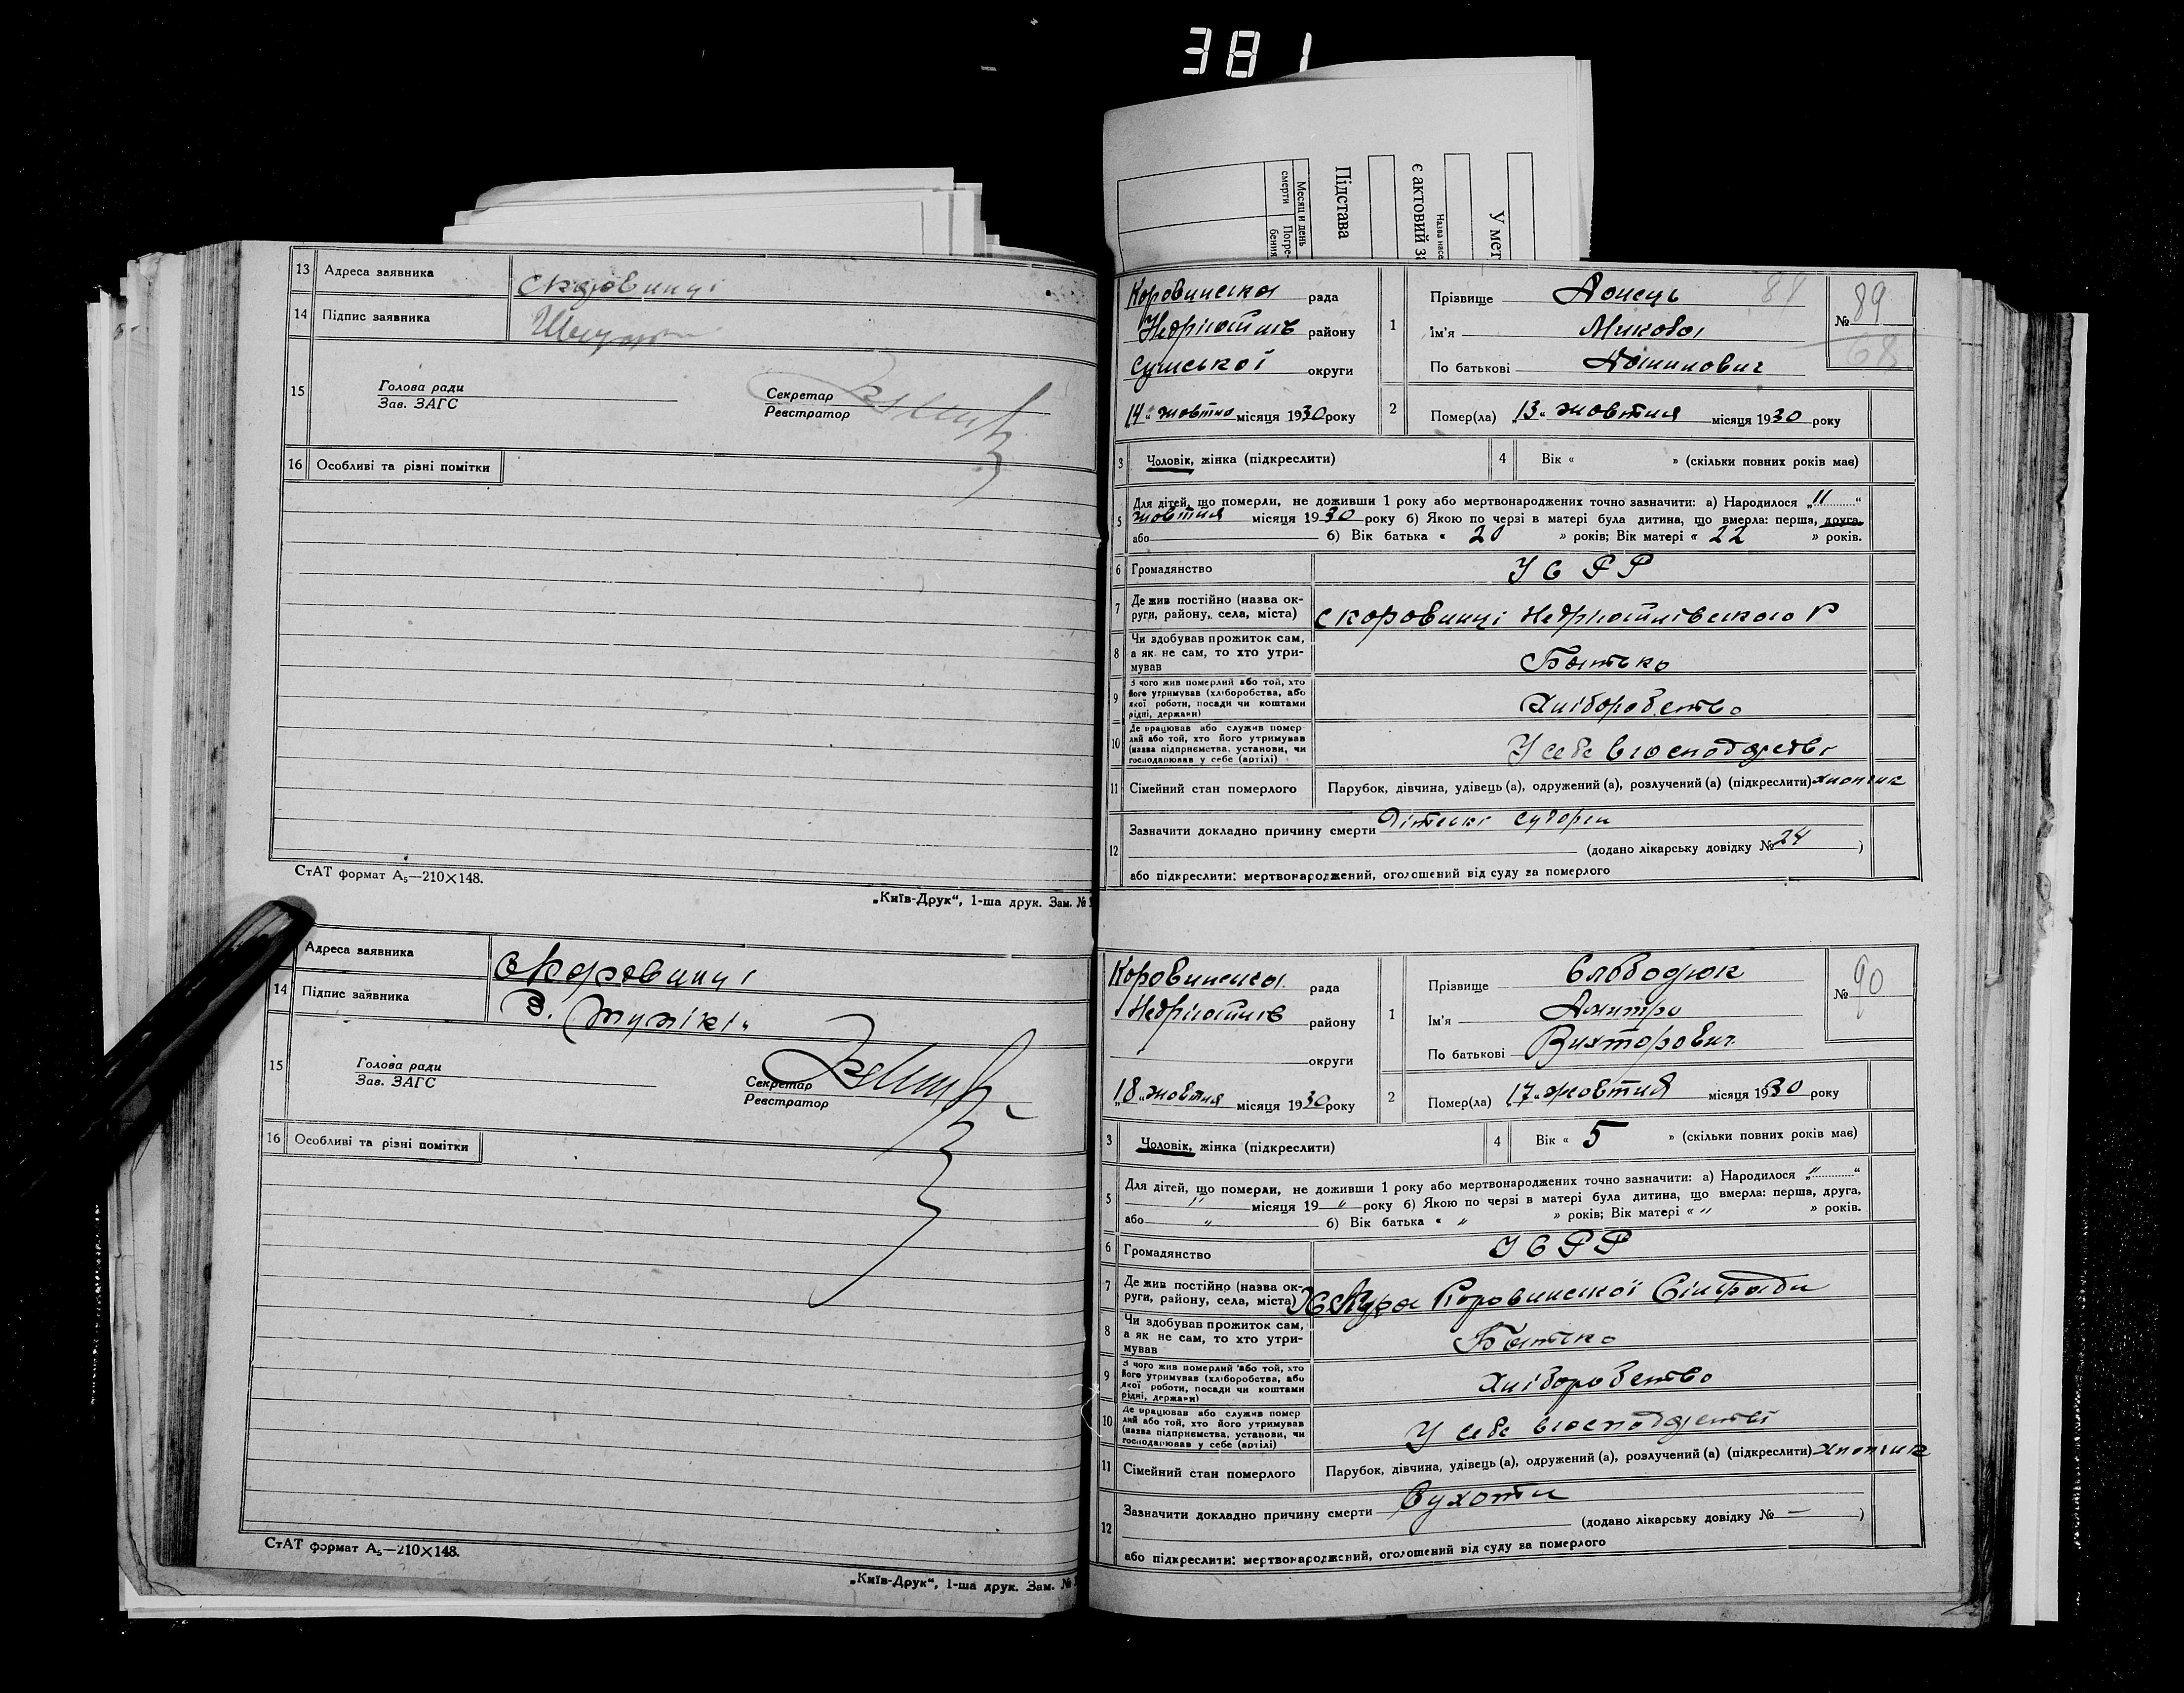 381
Месяц и день
смерти
Погре-
бения
Підстава
є актовий за
Назва насе
У мет
13 Адреса заявника Скоровинці
14 Підпис заявника
15 Голова ради
Зав. ЗАГС
Секретар
Реєстратор
16 Особливі та різні помітки
СтАТ формат А₅—210×148.
„Київ-Друк“, 1-ша друк. Зам. №
Адреса заявника Скоровинці
14 Підпис заявника
15 Голова ради
Зав. ЗАГС
Секретар
Реєстратор
16 Особливі та різні помітки
СтАТ формат А₅—210×148.
„Київ-Друк“, 1-ша друк. Зам. №
Коровинська рада
Недригайлів району
Сумської округи
„14“ жовтня місяця 1930 року
1 Прізвище Донець
Ім'я Микола
По батькові
№ 89
68
2 Помер(ла) „13“ жовтня місяця 1930 року
3 Чоловік, жінка (підкреслити)
4 Вік « » (скільки повних років має)
5 Для дітей, що померли, не доживши 1 року або мертвонароджених точно зазначити: а) Народилося „11“
жовтня місяця 1930 року б) Якою по черзі в матері була дитина, що вмерла: перша, друга,
або б) Вік батька « 20 » років; Вік матері « 22 » років.
6 Громадянство УСРР
7 Де жив постійно (назва ок-
руги, району, села, міста) с коровинці Недригайлівського Р
8 Чи здобував прожиток сам,
а як не сам, то хто утри-
мував Батько
9 З чого жив померлий або той, хто
його утримував (хліборобства, або
якої роботи, посади чи коштами
рідні, держави) Хліборобство
10 Де працював або служив помер
лий або той, хто його утримував
(назва підприємства, установи, чи
господарював у себе (артілі) У себе в господарстві
11 Сімейний стан померлого Парубок, дівчина, удівець (а), одружений (а), розлучений (а) (підкреслити) хлопчик
12 Зазначити докладно причину смерти Дитячі судороги
(додано лікарську довідку № 24 )
або підкреслити: мертвонароджений, оголошений від суду за померлого
Коровинська рада
Недригайлів району
округи
„18“ жовтня місяця 1930 року
1 Прізвище Слободюк
Ім'я Дмитро
По батькові Вихторович
№ 90
2 Помер(ла) „17“ жовтня місяця 1930 року
3 Чоловік, жінка (підкреслити)
4 Вік « 5 » (скільки повних років має)
5 Для дітей, що померли, не доживши 1 року або мертвонароджених точно зазначити: а) Народилося „ “
" місяця 19 " року б) Якою по черзі в матері була дитина, що вмерла: перша, друга,
або " б) Вік батька « " » років; Вік матері « " » років.
6 Громадянство УСРР
7 Де жив постійно (назва ок-
руги, району, села, міста) Коровинської Сільради
8 Чи здобував прожиток сам,
а як не сам, то хто утри-
мував Батько
9 З чого жив померлий або той, хто
його утримував (хліборобства, або
якої роботи, посади чи коштами
рідні, держави) Хліборобство
10 Де працював або служив помер
лий або той, хто його утримував
(назва підприємства, установи, чи
господарював у себе (артілі) У себе в господарстві
11 Сімейний стан померлого Парубок, дівчина, удівець (а), одружений (а), розлучений (а) (підкреслити) хлопчик
12 Зазначити докладно причину смерти Сухоти
(додано лікарську довідку № — )
або підкреслити: мертвонароджений, оголошений від суду за померлого